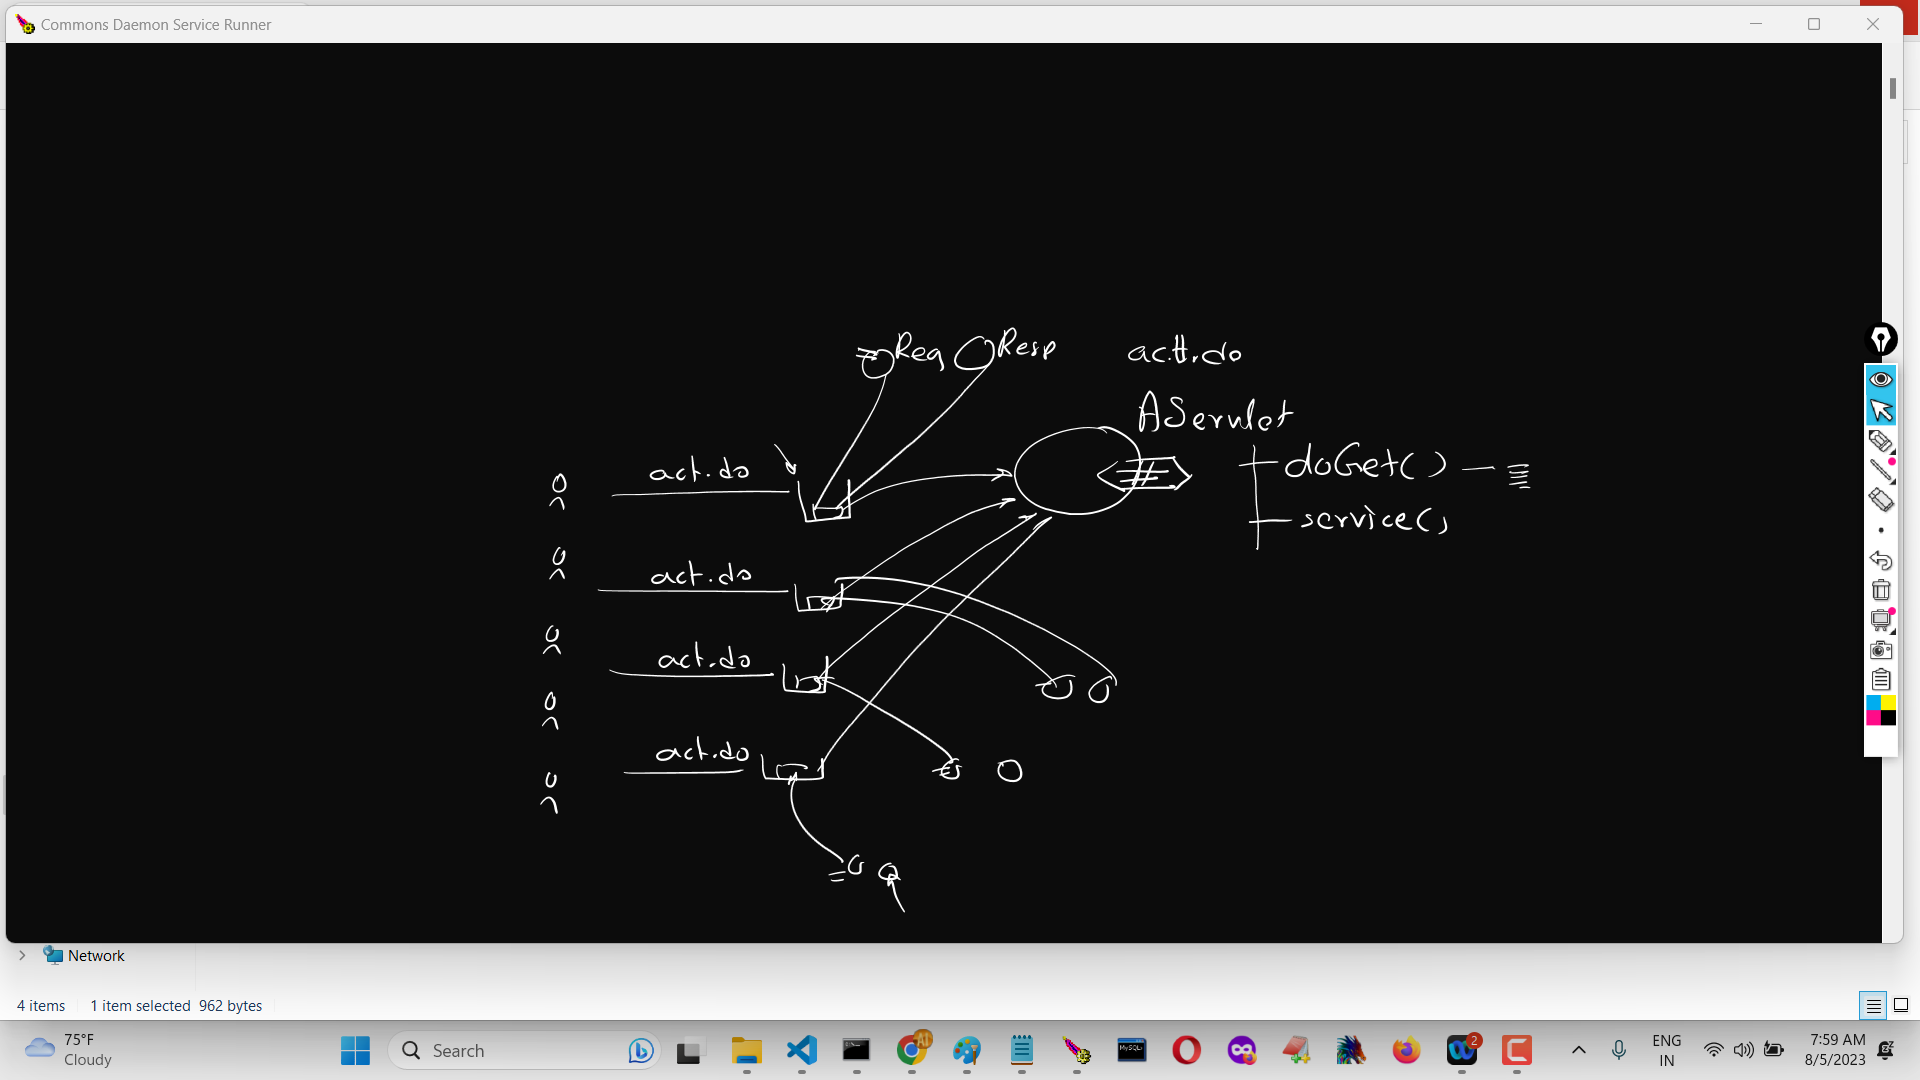 Commons Daemon Service Runner
Req Resp
act.do
AServlet
act.do
doGet()
service()
act.do
act.do
act.do
Network
4 items 1 item selected 962 bytes
75°F
Cloudy
Search
AI
MySQL
2
ENG
IN
7:59 AM
8/5/2023